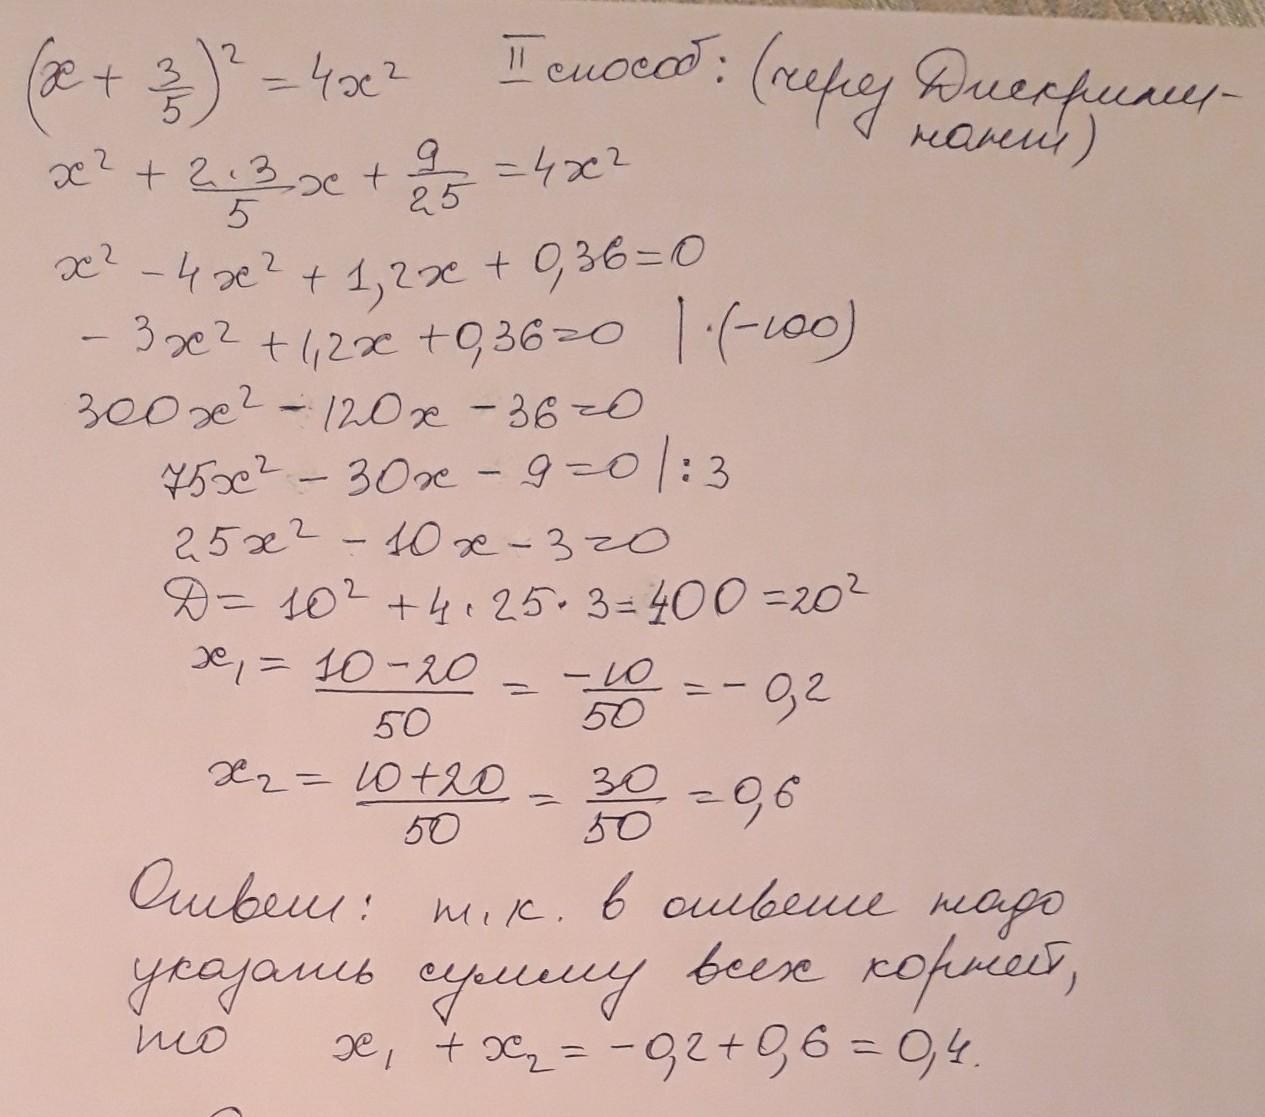 (x + 3/5)² = 4x² II способ: (через Дискрими-
нант)
x² + 2·3/5 x + 9/25 = 4x²
x² - 4x² + 1,2x + 0,36 = 0
- 3x² + 1,2x + 0,36 = 0 | ·(-100)
300x² - 120x - 36 = 0
75x² - 30x - 9 = 0 | : 3
25x² - 10x - 3 = 0
Д = 10² + 4 · 25 · 3 = 400 = 20²
x₁ = 10 - 20/50 = -10/50 = - 0,2
x₂ = 10 + 20/50 = 30/50 = 0,6
Ответ: т.к. в ответе надо
указать сумму всех корней,
то x₁ + x₂ = - 0,2 + 0,6 = 0,4.